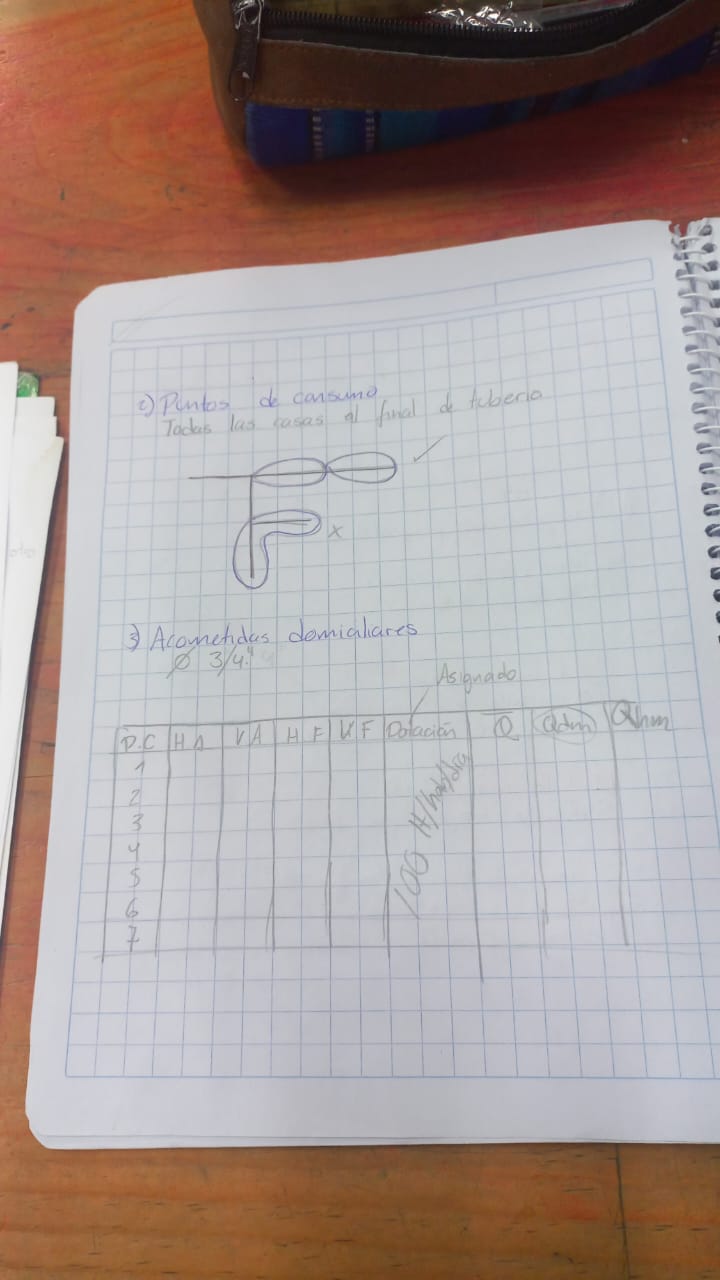 2) Puntos de consumo
Todas las casas al final de tuberia
✓
x
3) Acometidas domialiares
Ø 3/4"
Asignado
P.C H A V A H F V F Dotación Q Qdm Qhm
1
2
3
4
5
6
7
100 lt/hab/dia